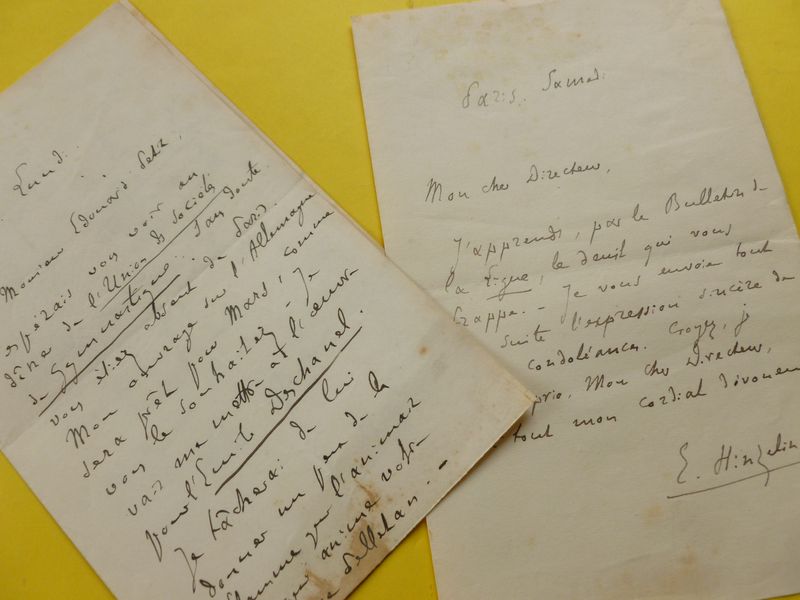 Lundi.
Monsieur Edouard Petit,
espérais vous voir au
dîner de l'Union des Sociétés
de Gymnastique. Sans doute
vous étiez absent de Paris.
Mon ouvrage sur l'Allemagne
sera prêt pour Mars, comme
vous le souhaitez. - Je
vais me mettre à l'œuvre
pour l'Emile Deschanel.
Je tâcherai de lui
donner un peu de la
flamme qui l'animait
qui anime votre
Pelletan. -
Paris. Samedi
Mon cher Directeur,
J'apprends, par le Bulletin de
la Ligue, le deuil qui vous
frappe. - Je vous envoie tout
suite l'expression sincère de
condoléances. Croyez, je
prie, Mon cher Directeur,
tout mon cordial dévouem
E. Hinzelin